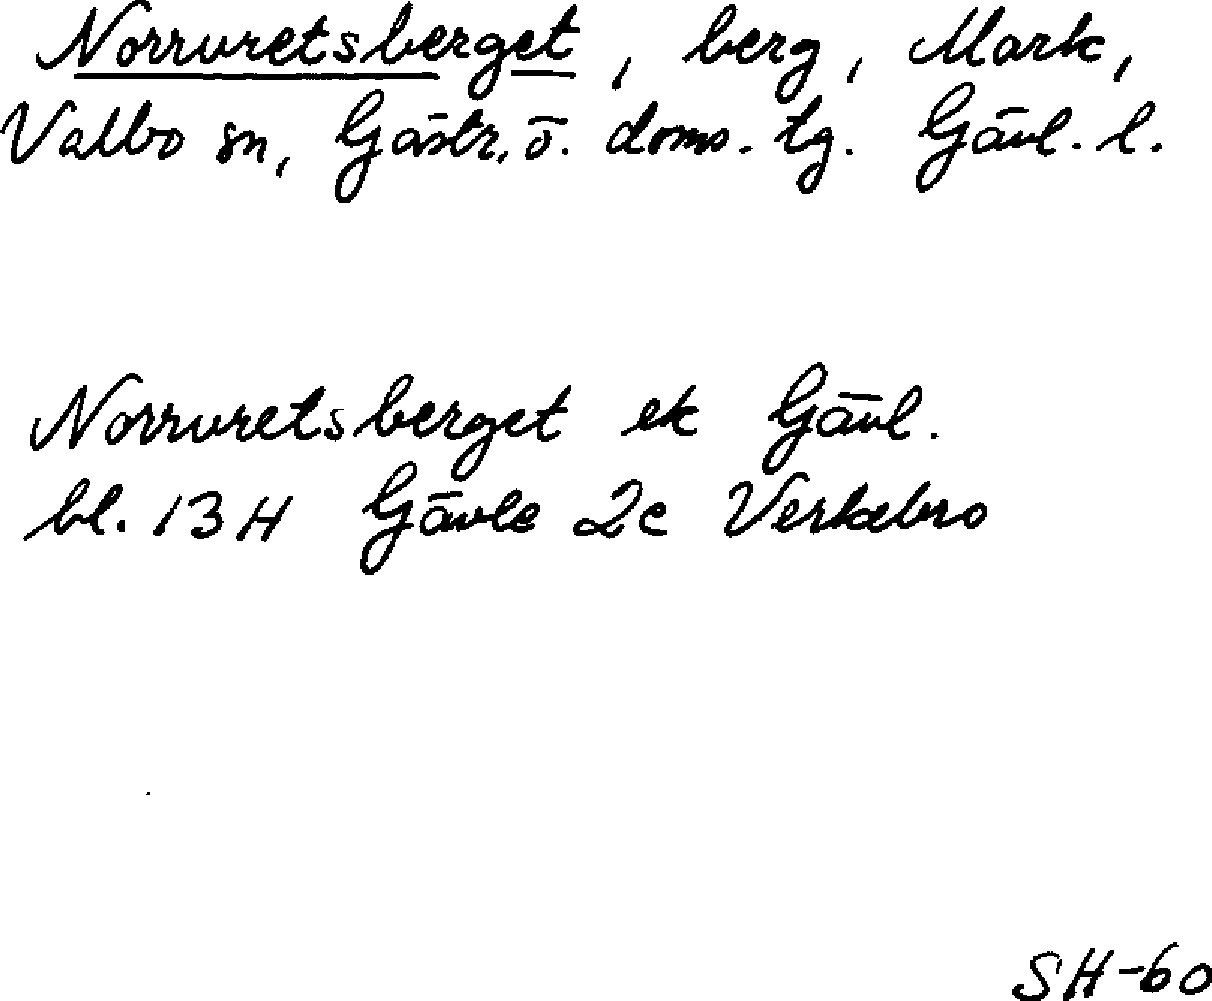 Norrvretsberget, berg, Mark,
Valbo sn, Gästr. ö. doms. tg. Gävl. l.
Norrvretsberget ek Gävl.
bl. 13 H Gävle 2c Verkebro
SH-60